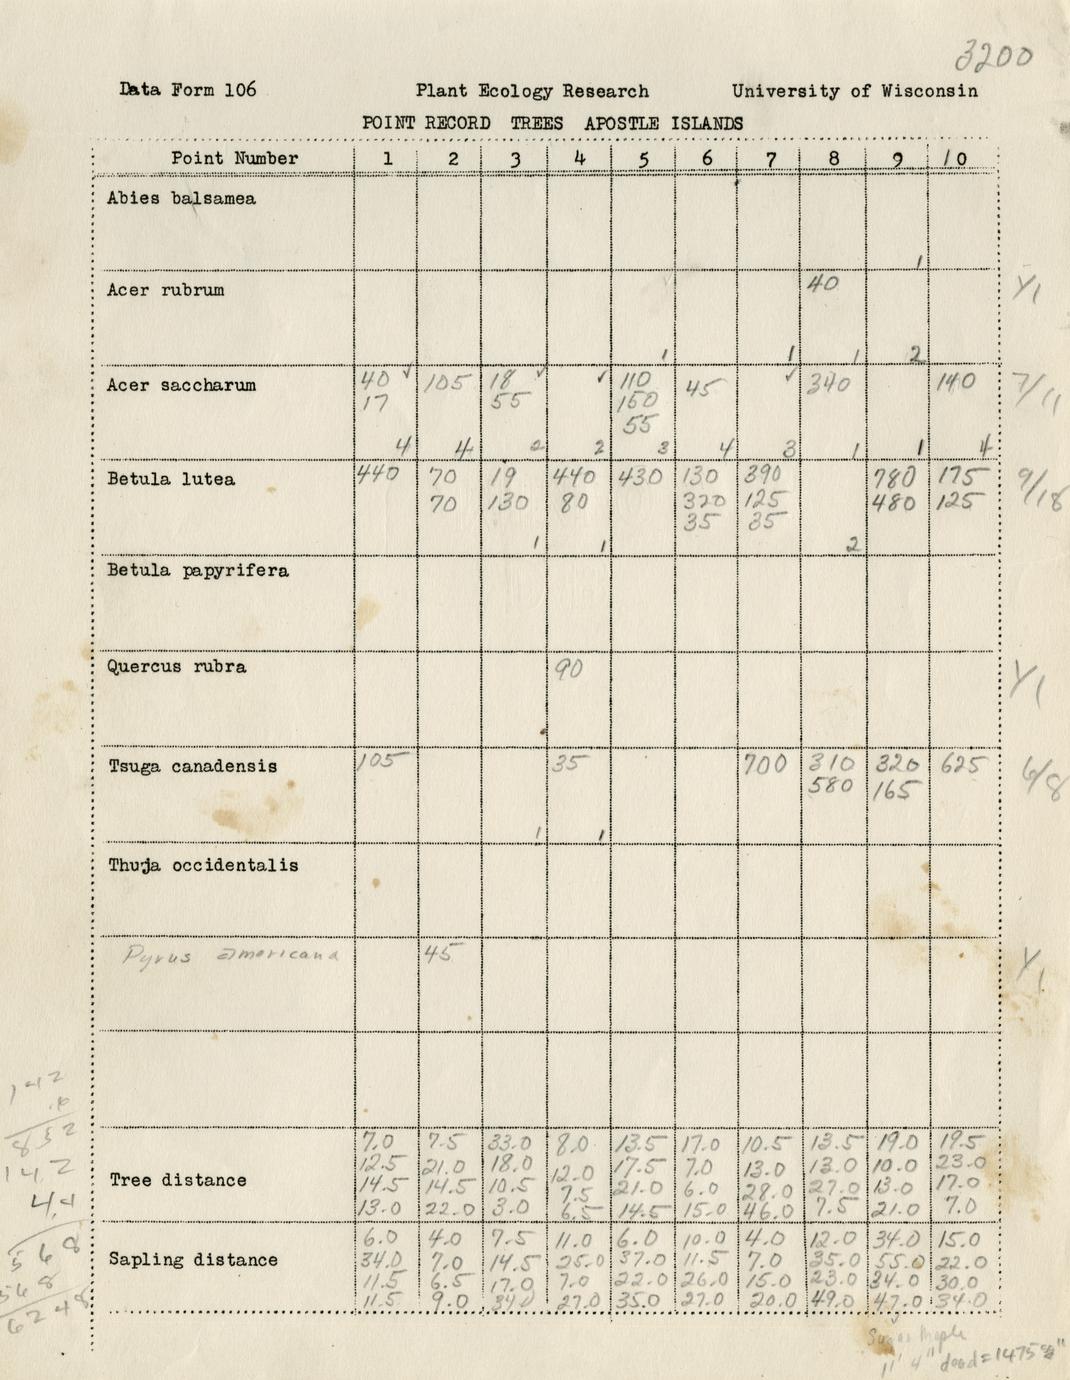 3200
Data Form 106 Plant Ecology Research University of Wisconsin
POINT RECORD TREES APOSTLE ISLANDS
Point Number 1 2 3 4 5 6 7 8 9 10
Abies balsamea
1
Acer rubrum 40 Y1
1 1 1 2
Acer saccharum 40 ✓ 105 18 ✓ ✓ 110 45 ✓ 340 140 7/11
17 55 160
55
4 4 2 2 3 4 3 1 1 4
Betula lutea 440 70 19 440 430 130 390 780 175 9/18
70 130 80 320 125 480 125
35 35
1 1 2
Betula papyrifera
Quercus rubra 90 Y1
Tsuga canadensis 105 35 700 310 320 625 6/8
580 165
1 1
Thuja occidentalis
Pyrus americana 45 Y1
142
.6
852
142
4.4
568
568
6248
7.0 7.5 33.0 8.0 13.5 17.0 10.5 13.5 19.0 19.5
12.5 21.0 18.0 12.0 17.5 7.0 13.0 13.0 10.0 23.0
Tree distance 14.5 14.5 10.5 7.5 21.0 6.0 28.0 27.0 13.0 17.0
13.0 22.0 3.0 6.5 14.5 15.0 46.0 7.5 21.0 7.0
6.0 4.0 7.5 11.0 6.0 10.0 4.0 12.0 34.0 15.0
Sapling distance 34.0 7.0 14.5 25.0 37.0 11.5 7.0 35.0 55.0 22.0
11.5 6.5 17.0 7.0 22.0 26.0 15.0 23.0 34.0 30.0
11.5 9.0 34.0 27.0 35.0 27.0 20.0 49.0 47.0 34.0
Sugar Maple
11' 4" dead = 1475